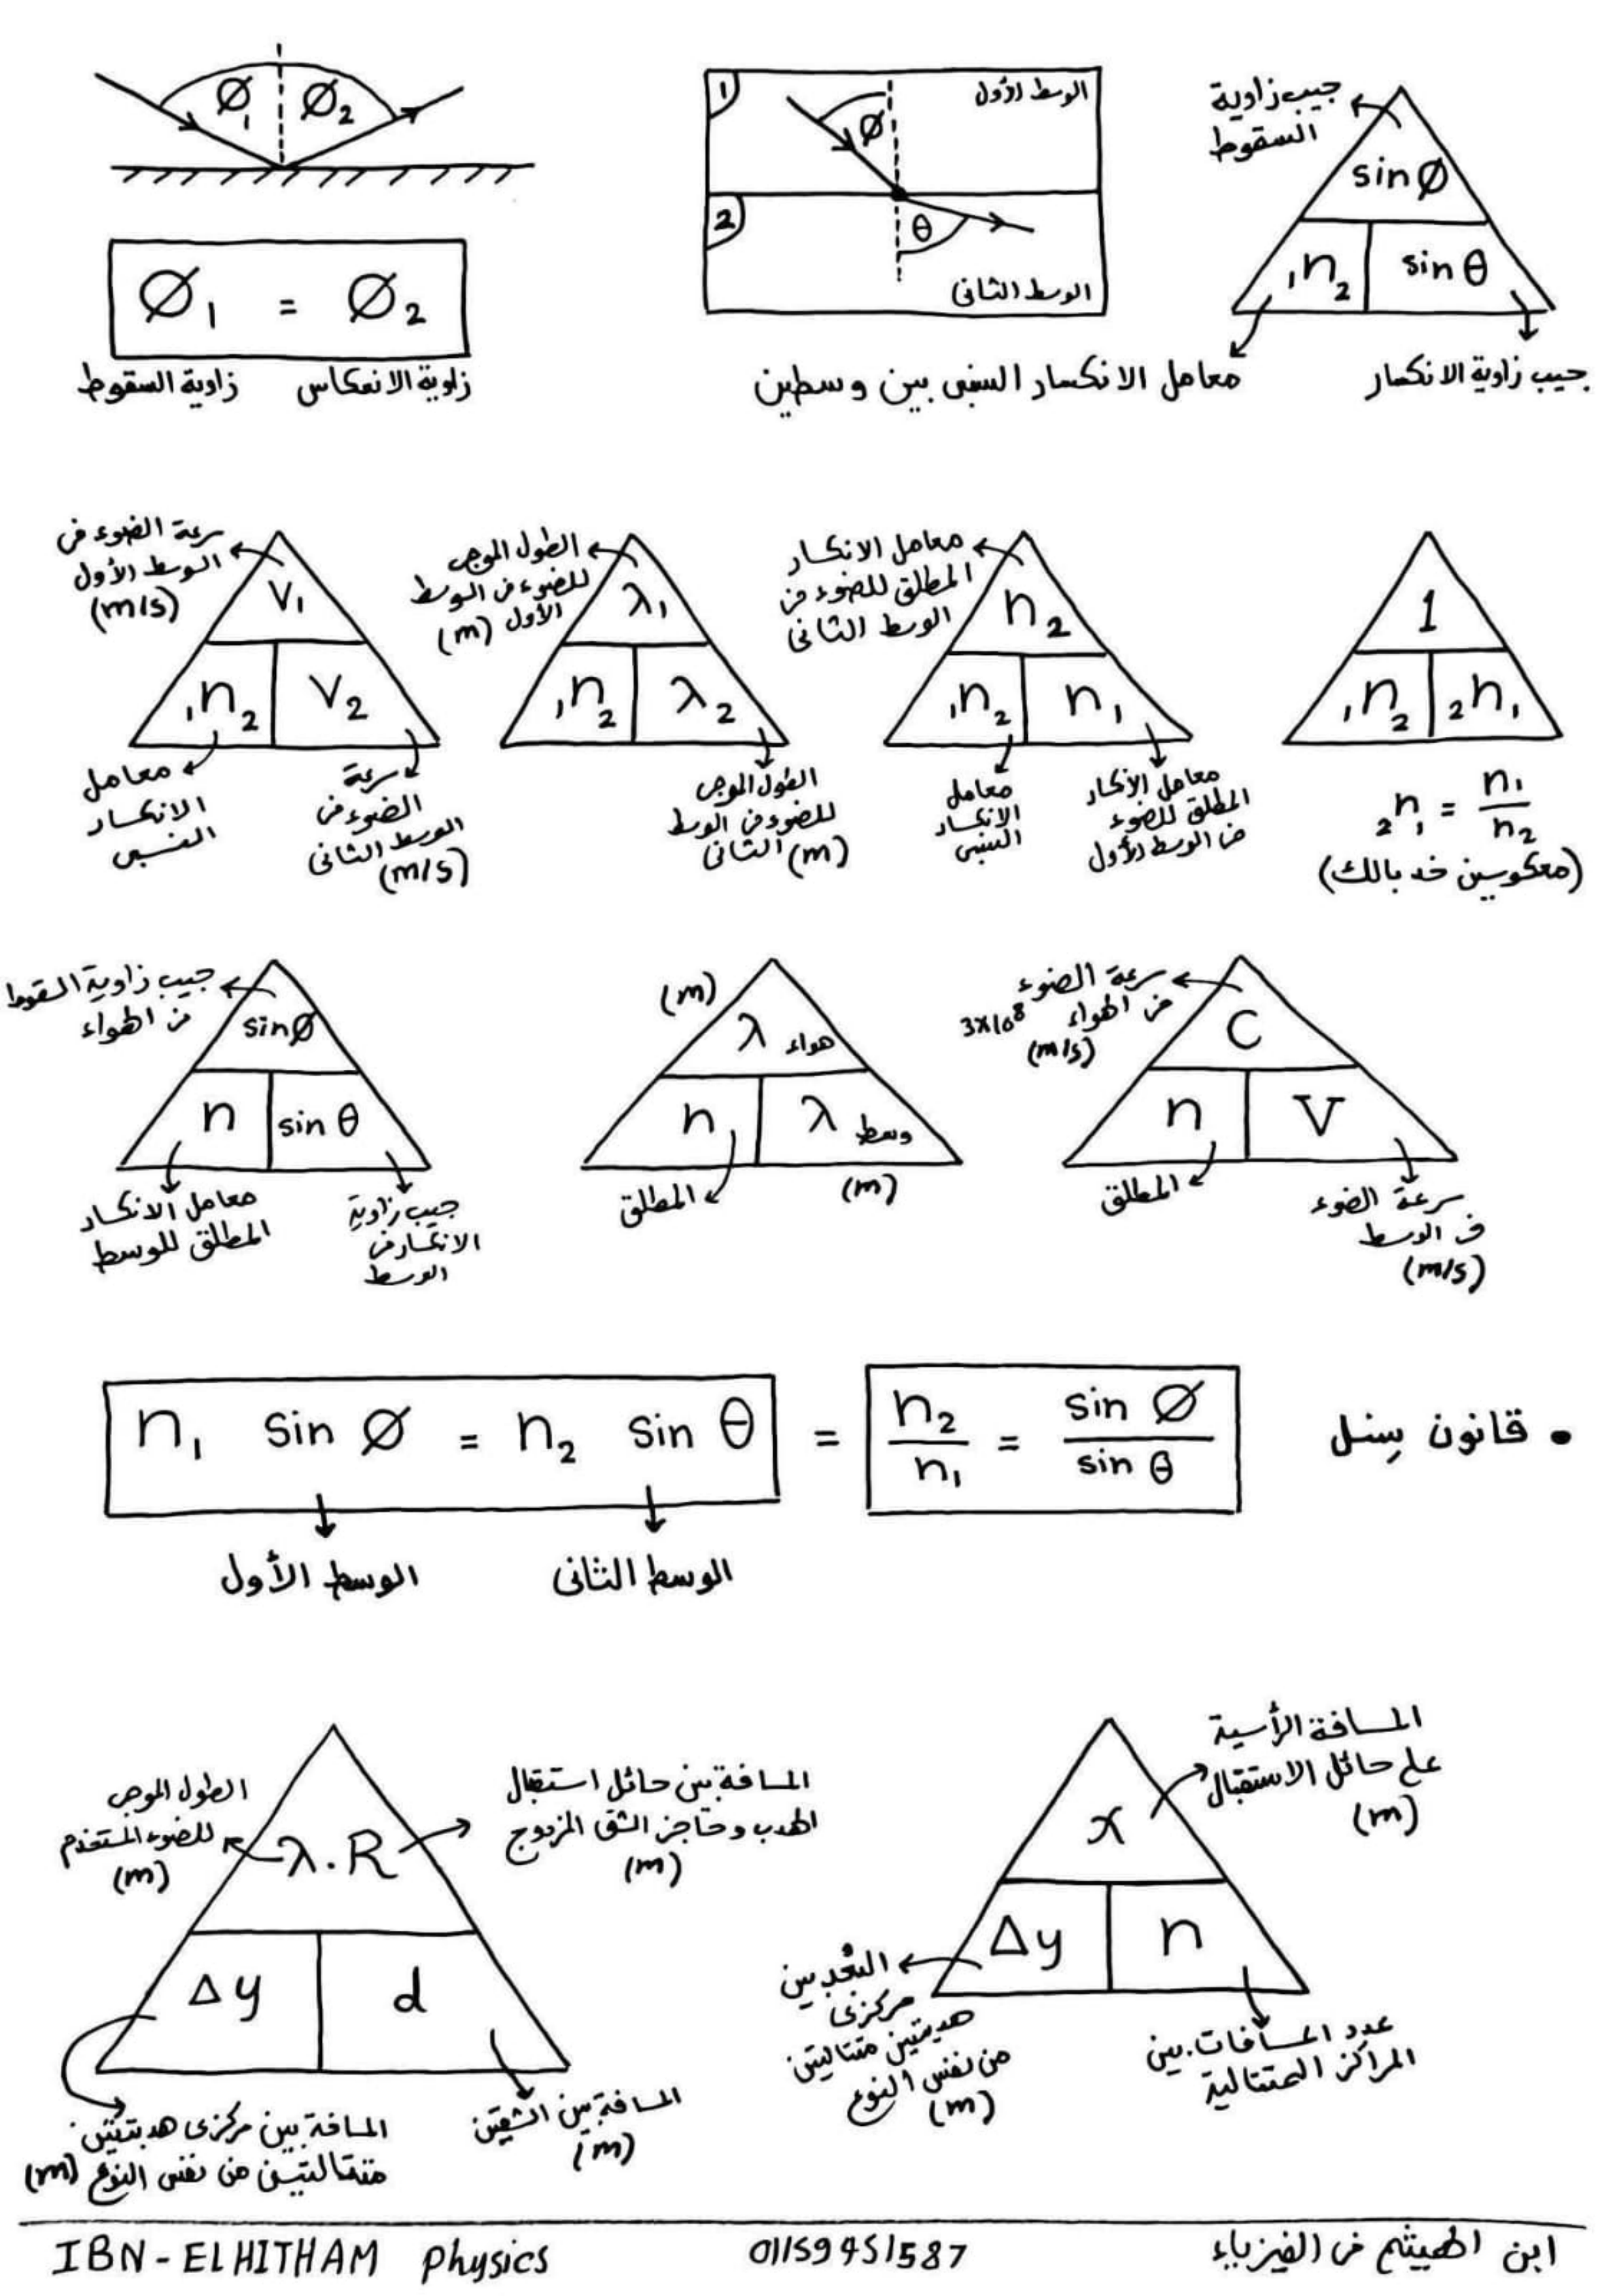 Ø₁ Ø₂
Ø₁ = Ø₂
زاوية السقوط
زاوية الانعكاس
1
الوسط الأول
Ø
2
θ
الوسط الثانى
جيب زاوية
السقوط
sin Ø
₁n₂ sin θ
معامل الانكسار النسبى بين وسطين
جيب زاوية الانكسار
سرعة الضوء فى
الوسط الأول
(m/s)
V₁
₁n₂ V₂
معامل
الانكسار
النسبى
سرعة
الضوء فى
الوسط الثانى
(m/s)
الطول الموجى
للضوء فى الوسط
الأول (m)
λ₁
₁n₂ λ₂
الطول الموجى
للضوء فى الوسط
الثانى (m)
معامل الانكسار
المطلق للضوء فى
الوسط الثانى
n₂
₁n₂ n₁
معامل
الانكسار
النسبى
معامل الانكسار
المطلق للضوء
فى الوسط الأول
1
₁n₂ ₂n₁
₂n₁ = n₁/n₂
(معكوسين خد بالك)
جيب زاوية السقوط
فى الهواء
sin Ø
n sin θ
معامل الانكسار
المطلق للوسط
جيب زاوية
الانكسار فى
الوسط
(m)
λ هواء
n λ وسط
المطلق
(m)
سرعة الضوء
فى الهواء
3x10⁸
(m/s)
C
n V
المطلق
سرعة الضوء
فى الوسط
(m/s)
• قانون سنل
n₁ sin Ø = n₂ sin θ = n₂/n₁ = sin Ø/sin θ
الوسط الأول
الوسط الثانى
الطول الموجى
للضوء المستخدم
(m)
المسافة بين حائل استقبال
الهدب وحاجز الشق المزدوج
(m)
λ.R
Δy d
المسافة بين مركزى هدبتين
متتاليتين من نفس النوع (m)
المسافة بين الشقين
(m)
المسافة الرأسية
على حائل الاستقبال
(m)
x
Δy n
البُعد بين
مركزى
هدبتين متتاليتين
من نفس النوع
(m)
عدد المسافات بين
المراكز المتتالية
IBN-ELHITHAM Physics
01159451587
ابن الهيثم فى الفيزياء